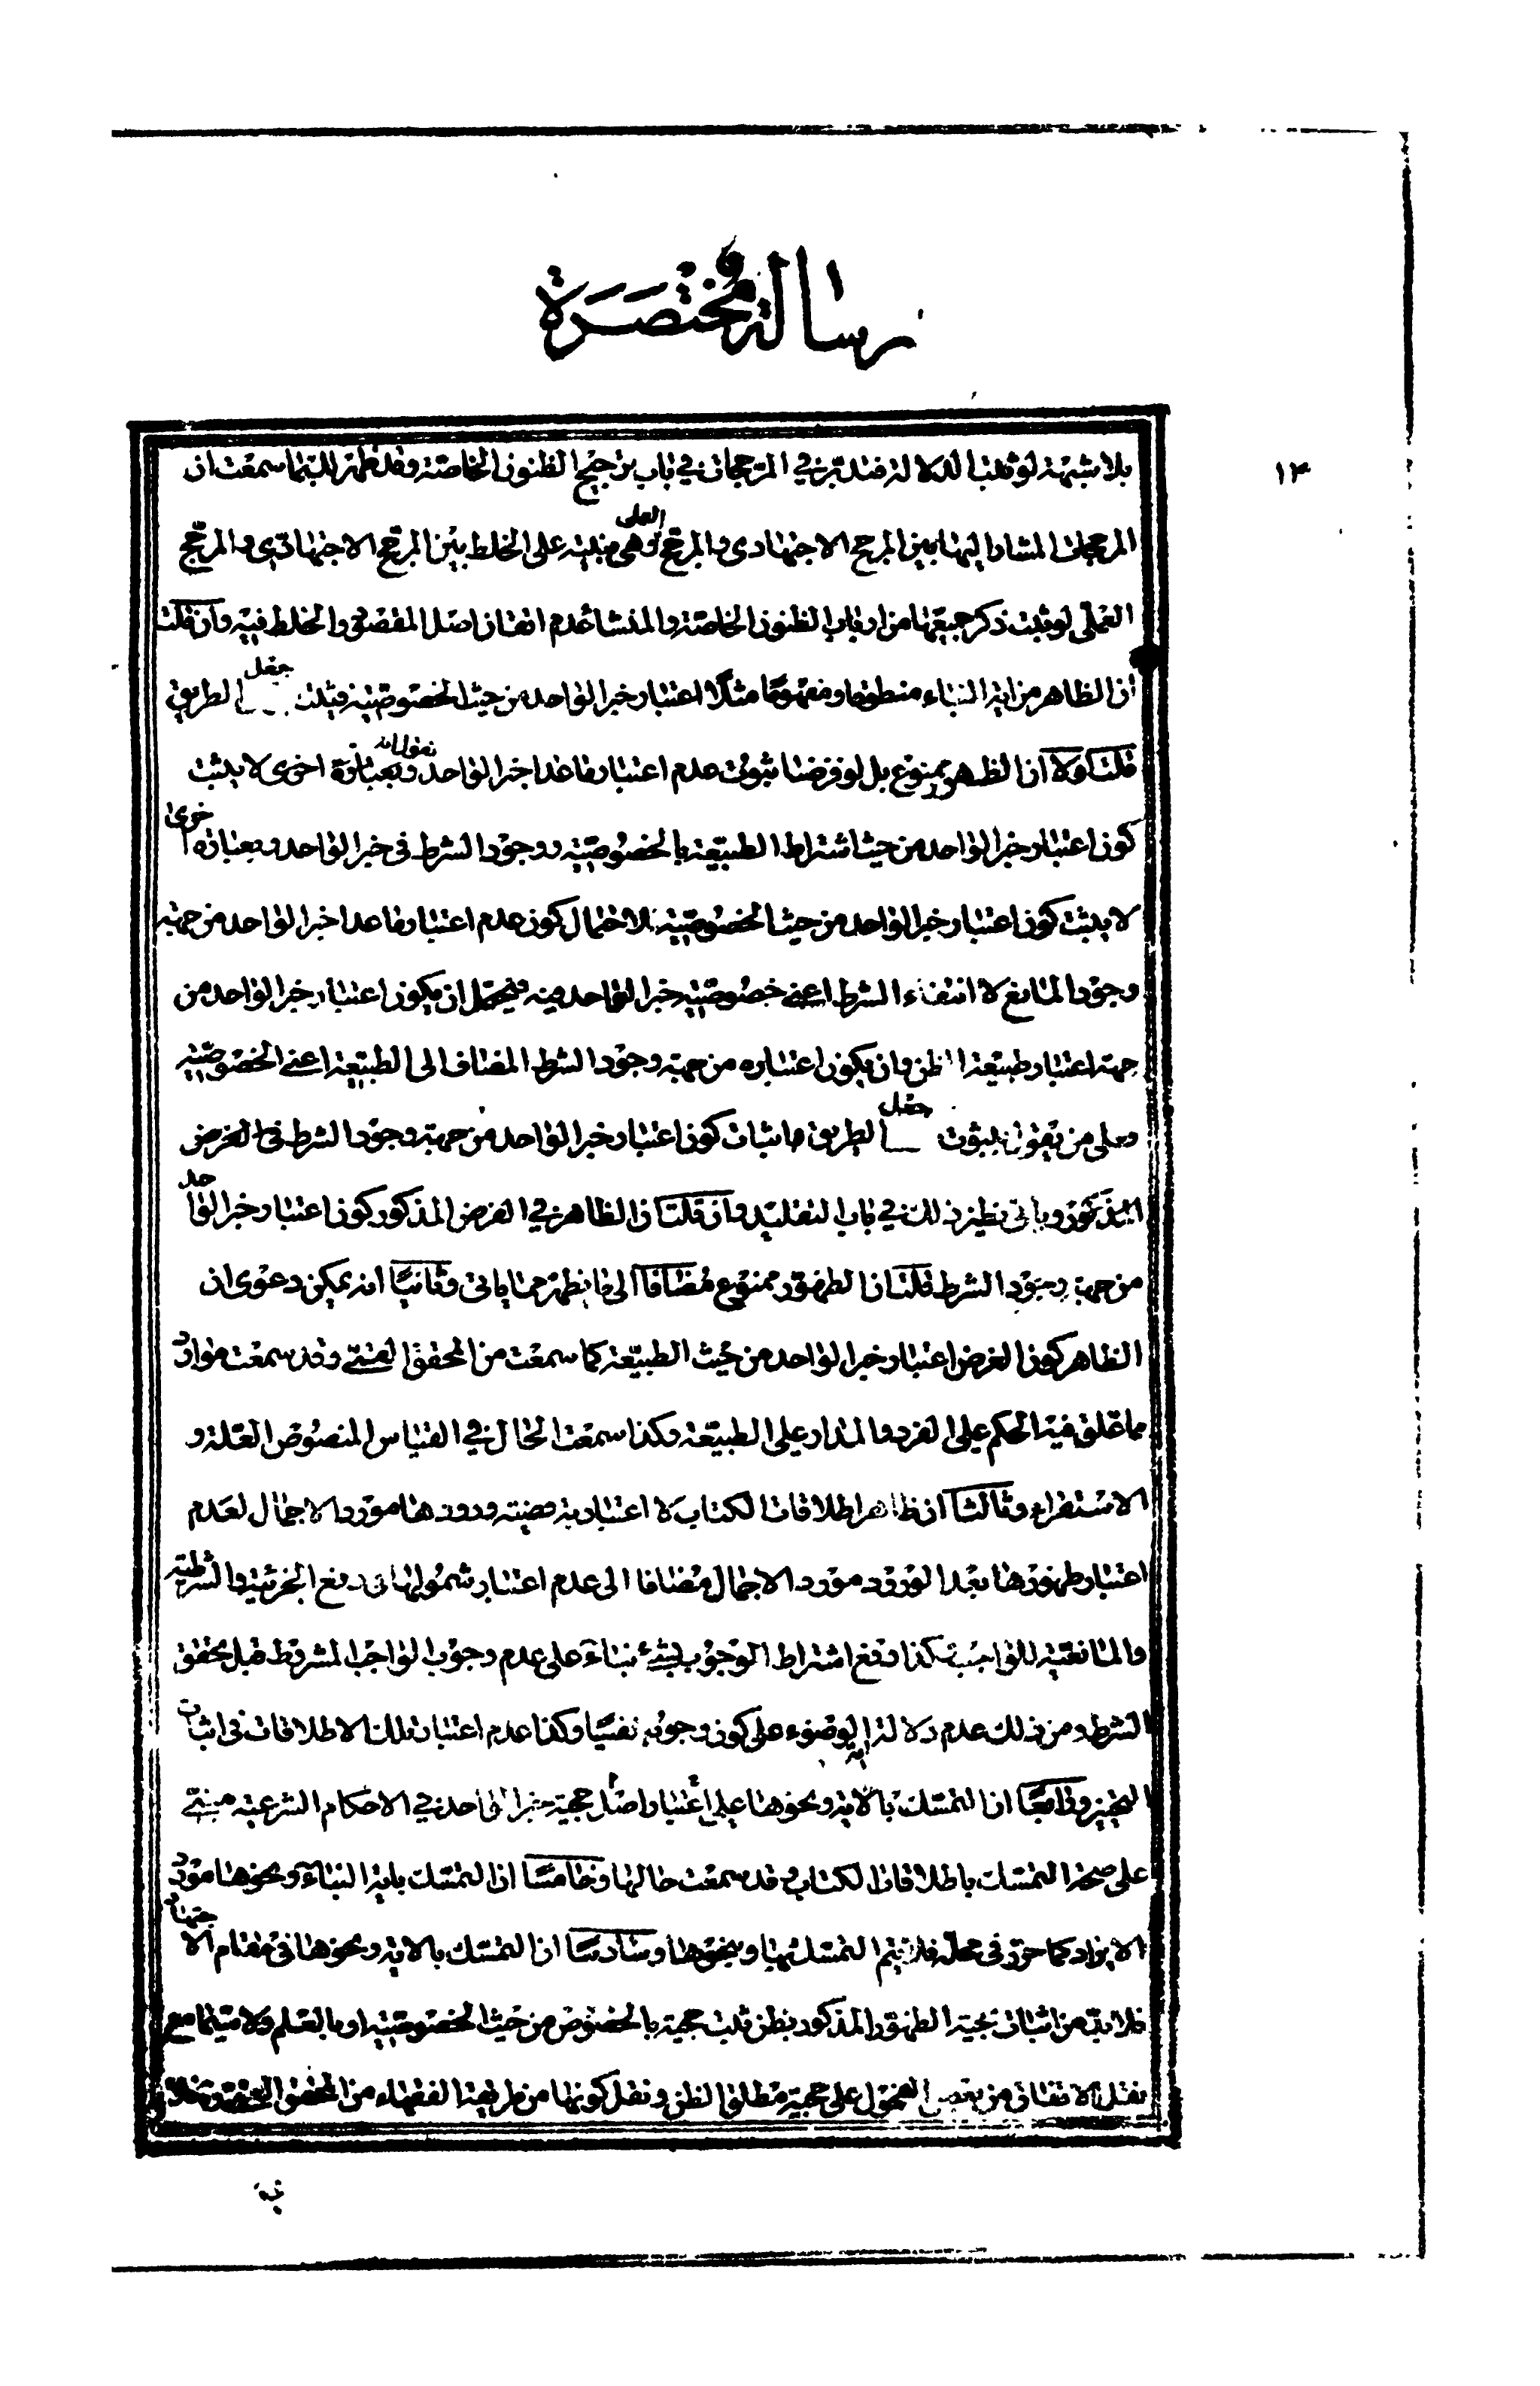 رسالة مُختَصَرَة
١٣
بلا شبهة لو ثبت الدلالة فتدبر في المرجحات في باب ترجيح الظنون الخاصّة وقد ظهر لك بما سمعت ان
المرجحات المشار اليها بين المرجح الاجتهادى والمرجح العملى وهى مبنية على الخلط بين المرجح الاجتهادي والمرجح
العملى لو ثبت ذكر جميعها من ارباب الظنون الخاصّة والمنشأ عدم اتقان اصل المقصود والخلط فيه وان قلت
ان الظاهر من اية النباء منطوقا ومفهومًا مثلًا اعتبار خبر الواحد من حيث الخصوصيّة فيثبت جعل الطريق
قلت اولا ان الظهور ممنوع بل لو فرضنا ثبوت عدم اعتبار ما عدا خبر الواحد وبعبارة اخرى لا يثبت
كون اعتبار خبر الواحد من حيث اشتراط الطبيعة بالخصوصيّة ووجود الشرط فى خبر الواحد وبعبارة اخرى
لا يثبت كون اعتبار خبر الواحد من حيث الخصوصيّة لاحتمال كون عدم اعتبار ما عدا خبر الواحد من جهة
وجود المانع لا انتفاء الشرط اعنى خصوصيّة خبر الواحد فيه فيحتمل ان يكون اعتبار خبر الواحد من
جهة اعتبار طبيعة الظن وان يكون اعتباره من جهة وجود الشرط المضاف الى الطبيعة اعنى الخصوصيّة
وعلى من يقول بثبوت جعل الطريق اثبات كون اعتبار خبر الواحد من جهة وجود الشرط فى الفرض
المذكور ويأتى نظير ذلك في باب التقليد وان قلت ان الظاهر في الفرض المذكور كون اعتبار خبر الواحد
من جهة وجود الشرط قلت ان الظهور ممنوع مُضافا الى ما يظهر مما ياتى وثانيًا انه يمكن دعوى ان
الظاهر كون الغرض اعتبار خبر الواحد من حيث الطبيعة كما سمعت من المحقق القمّي وقد سمعت موارد
مما علق فيه الحكم على الفرد والمدار على الطبيعة وكذا سمعت الحال في القياس المنصوص العلة و
الاستقراء وثالثا ان ظاهر اطلاقات الكتاب لا اعتبار به قضيته ورودها مورد الاجمال لعدم
اعتبار ظهورها بعد الورود مورد الاجمال مضافا الى عدم اعتبار شمولها فى دفع الجزئية والشرطية
والمانعيّة للواجب وكذا دفع اشتراط الوجوب بشىء بناء على عدم وجوب الواجب المشروط قبل تحقق
الشرط ومن ذلك عدم دلالة اية الوضوء على كون وجوبه نفسيًا وكذا عدم اعتبار تلك الاطلاقات فى اثبات
التخيير ورابعًا ان التمسك بالاية ونحوها على اعتبار اصل حجية خبر الواحد في الاحكام الشرعية مبنى
على صحة التمسك باطلاقات الكتاب وقد سمعت حالها وخامسًا ان التمسك باية النباء ونحوها مورد
الايراد كما حرّر فى محله فلا يتم التمسك بها وبنحوها وسادسًا ان التمسك بالاية ونحوها فى مقام الاجتهاد
فلا بدّ من اثبات حجية الظهور المذكور بظن ثبت حجيته بالخصوص من حيث الخصوصيّة او بالعلم ولا سيّما مع
نقل الاتفاق من بعض الفحول على حجية مطلق الظن ونقل كونها من طريقة الفقهاء من المحقق القمى